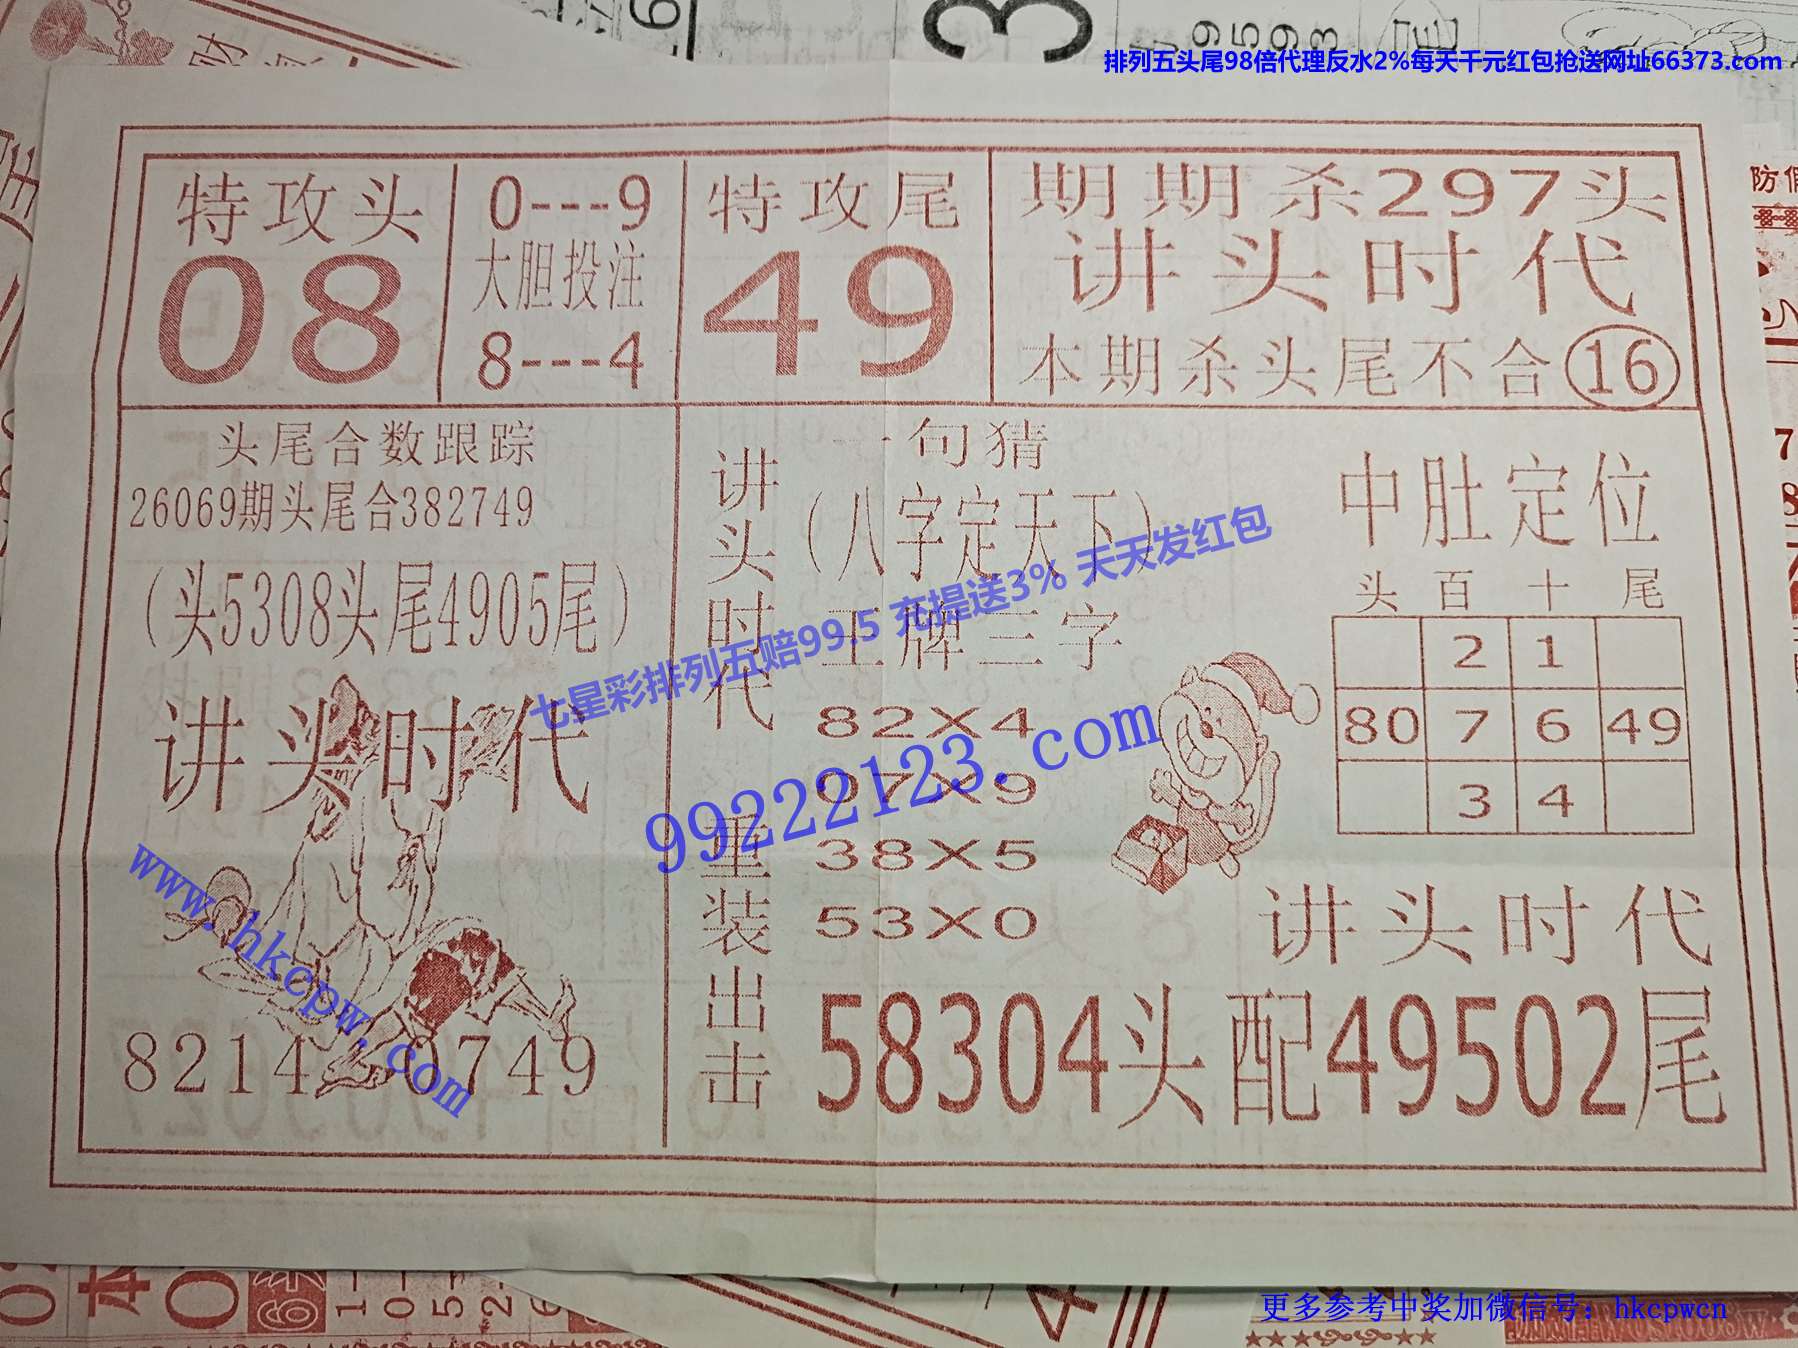 排列五头尾98倍代理反水2%每天千元红包抢送网址66373.com
特攻头
08
0---9
大胆投注
8---4
特攻尾
49
期期杀297头
讲头时代
本期杀头尾不合16
头尾合数跟踪
26069期头尾合382749
(头5308头尾4905尾)
讲头时代
8214 0749
讲头时代
重装出击
一句猜
(八字定天下)
王牌三字
82X4
07X9
38X5
53X0
中肚定位
头 百 十 尾
2 1
80 7 6 49
3 4
讲头时代
58304头配49502尾
七星彩排列五赔99.5 充提送3% 天天发红包
99222123.com
www.hkcpw.com
更多参考中奖加微信号: hkcpwcn